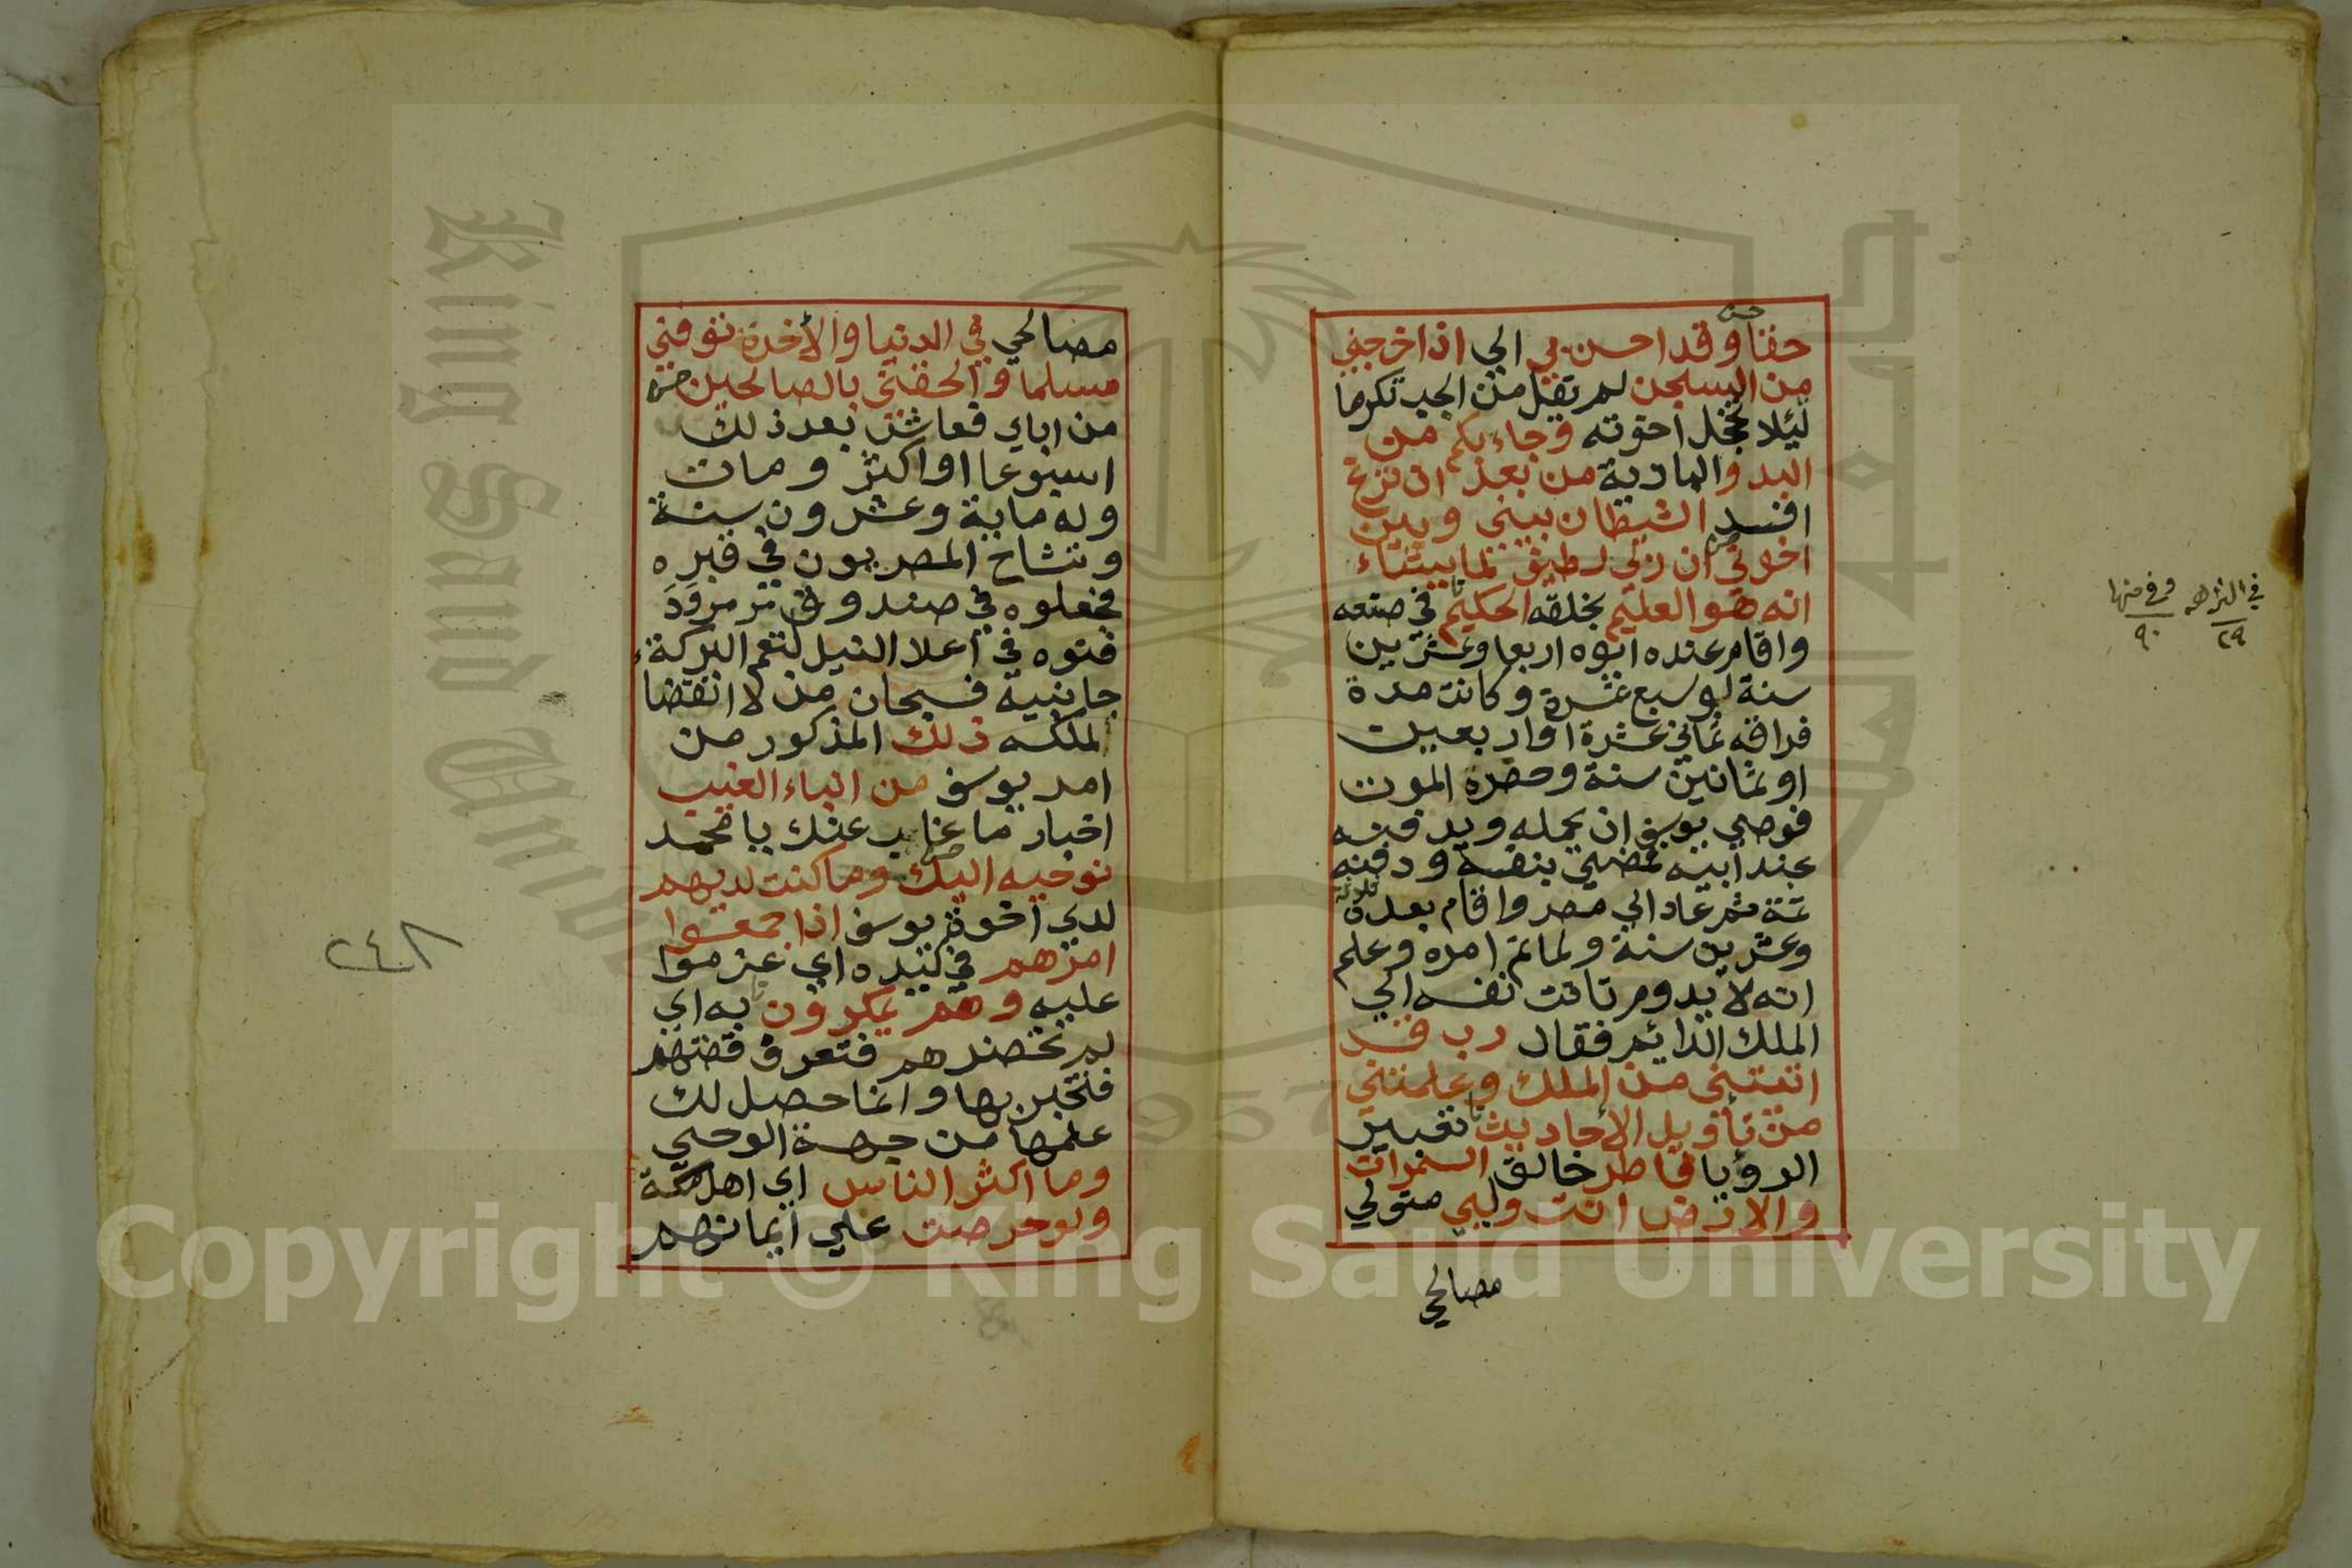 حقا وقد احسن بي الي اذ اخرجني
من السجن لم يقل من الجب تكرما
ليلا تخجل اخوته وجاء بكم من
البدو البادية من بعد ان نزغ
افسد الشيطان بيني وبين
اخوتي ان ربي لطيف لما يشاء
انه هو العليم بخلقه الحكيم في صنعه
واقام عنده ابوه اربعا وعشرين
سنة او سبع عشرة وكانت مدة
فراقه ثماني عشرة او اربعين
او ثمانين سنة وحضره الموت
فوصي يوسف ان يحمله ويدفنه
عند ابيه فمضي بنفسه ودفنه
ثمة ثم عاد الي مصر واقام بعده ثلاثة
وعشرين سنة ولما تم امره وعلم
انه لا يدوم تاقت نفسه الي
الملك الدايم فقال رب قد
اتيتني من الملك وعلمتني
من تأويل الاحاديث تعبير
الرويا فاطر خالق السموات
والارض انت وليي متولي
مصالحي
في النزهه وفي منها
٢٩ ٩٠
مصالحي في الدنيا والأخرة توفني
مسلما والحقني بالصالحين
من اباي فعاش بعد ذلك
اسبوعا او اكثر ومات
وله ماية وعشرون سنة
وتشاح المصريون في قبره
فجعلوه في صندوق مرمر ود
فنوه في اعلا النيل لتعم البركة
جانبيه فسبحان من لا انقضا
لملكه ذلك المذكور من
امر يوسف من انباء الغيب
اخبار ما غاب عنك يا محمد
نوحيه اليك وما كنت لديهم
لدي اخوة يوسف اذ اجمعوا
امرهم في كيده اي عزموا
عليه وهم يمكرون به اي
لم تحضرهم فتعرف قصتهم
فتخبر بها وانما حصل لك
علمها من جهة الوحي
وما اكثر الناس اي اهل مكة
ولو حرصت علي ايمانهم
٢٤٨
King Saud University
1957
Copyright © King Saud University